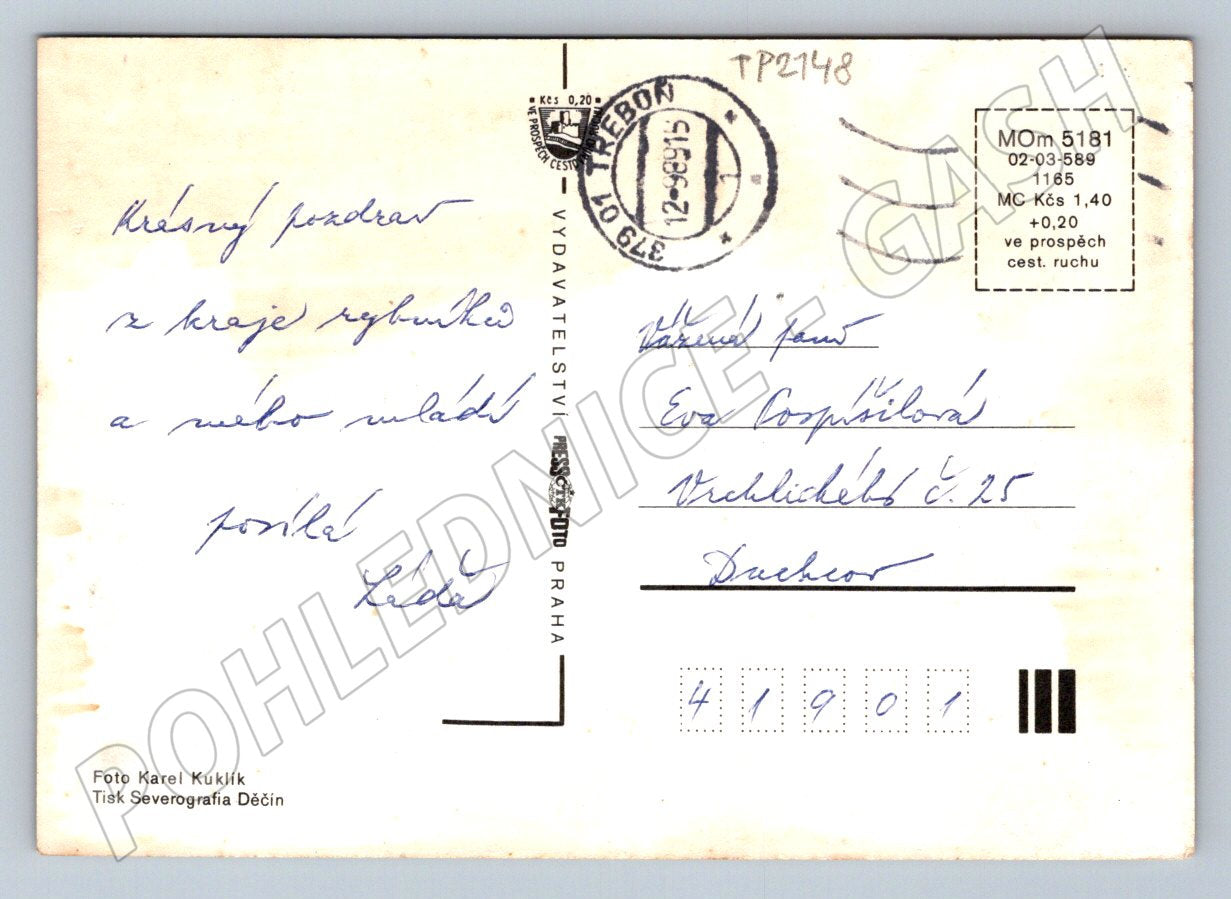 TP2148
Kčs 0,20
VE PROSPĚCH CESTOVNÍHO RUCHU
379 01 TŘEBOŇ
12.-9.89.15
1
MOm 5181
02-03-589
1165
MC Kčs 1,40
+0,20
ve prospěch
cest. ruchu
Krásný pozdrav
z kraje rybníků
a mého mládí
posílá
Láďa
VYDAVATELSTVÍ PRESSFOTO PRAHA
ČTK
Vážená paní
Eva Pospíšilová
Vrchlického č. 25
Duchcov
41901
Foto Karel Kuklík
Tisk Severografia Děčín
POHLEDNICE - GASH